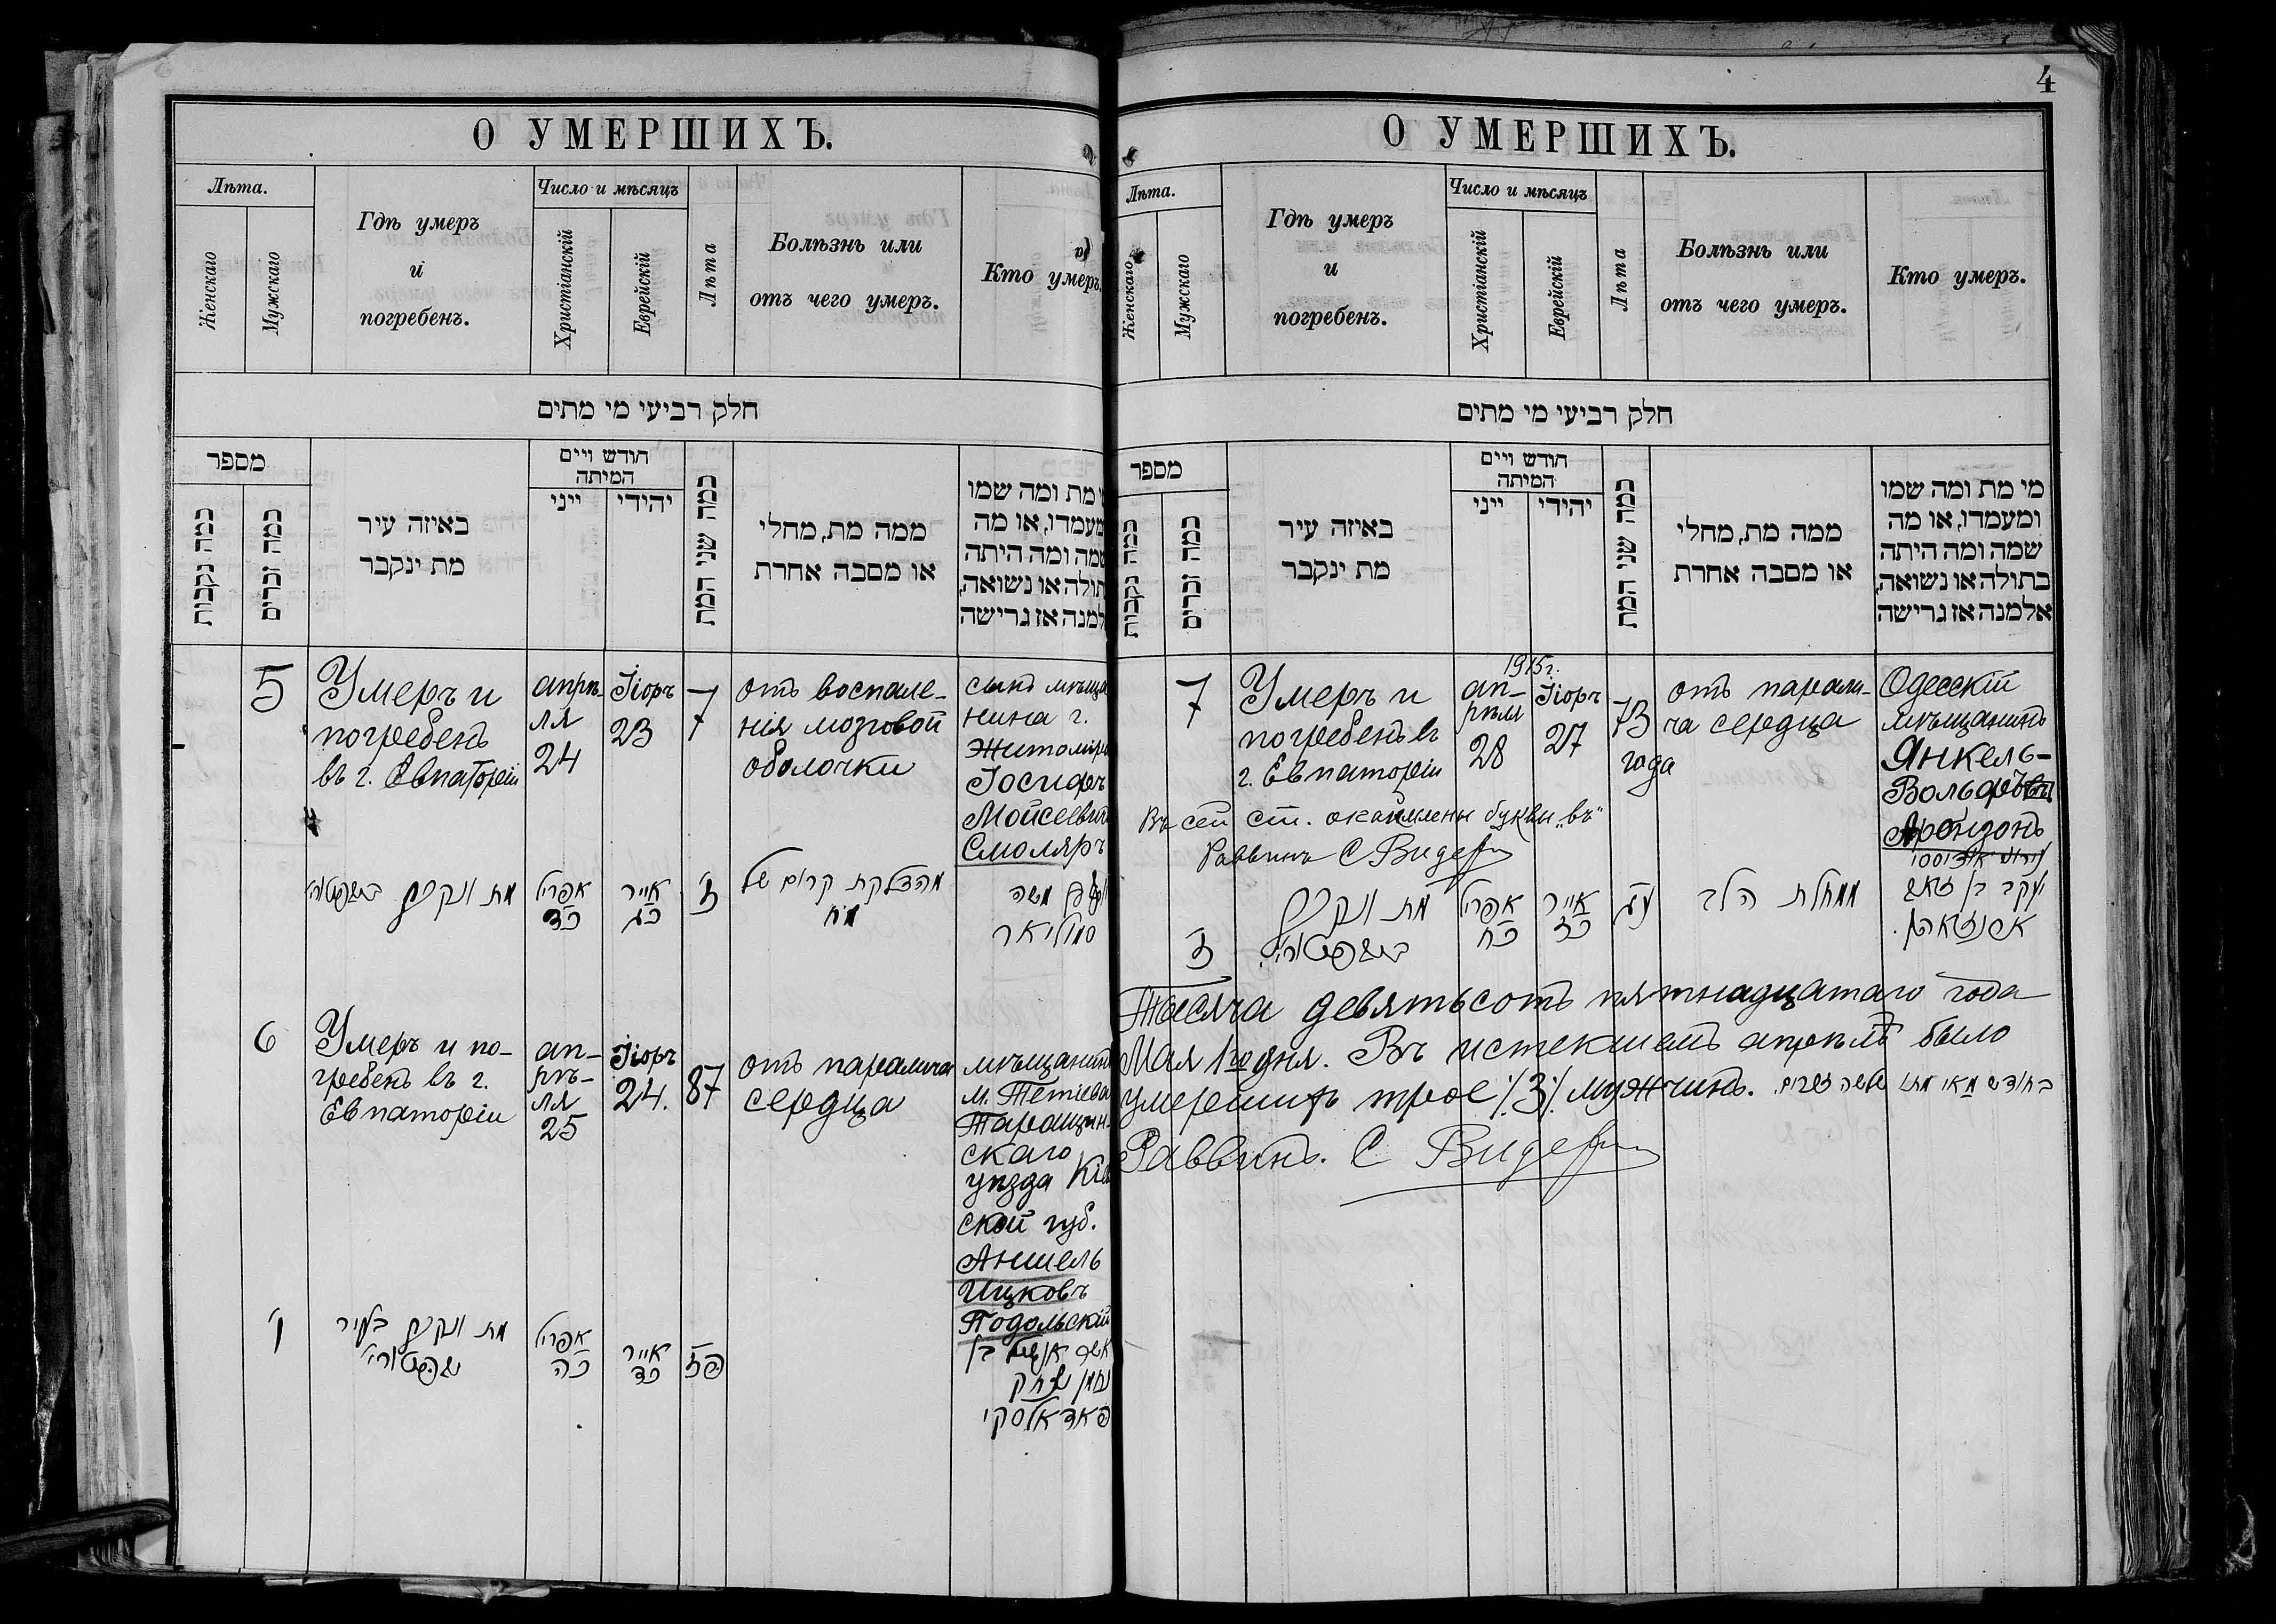 О УМЕРШИХЪ.
Лѣта.
Женскаго
Мужскаго
Гдѣ умеръ
и
погребенъ.
Число и мѣсяцъ
Христіанскій
Еврейскій
Лѣта
Болѣзнь или
отъ чего умеръ.
Кто умеръ.
חלק רביעי מי מתים
מספר
כמה נקבות
כמה זכרים
באיזה עיר
מת ינקבר
חודש ויים
המיתה
ייני
יהידי
כמה שני המת
ממה מת, מחלי
או מסבה אחרת
מת ומה שמו
מעמדו, או מה
שמה ומה היתה
תולה או נשואה,
למנה אז גרישה
5
Умеръ и
погребенъ
въ г. Евпаторіи
апрѣ
ля
24
Ііоръ
23
7
отъ воспале-
нія мозговой
оболочки
сынъ мѣща
нина г.
Житомира
Іосифъ
Мойсеевичъ
Смоляръ
מת ונקבר
אפריל
כד
אייר
כג
ז'
מהדלקת קרום של
מח
משה
סמוליאר
6
Умеръ и по-
гребенъ въ г.
Евпаторіи
ап-
рѣ-
ля
25
Ііоръ
24.
87
отъ паралича
сердца
мѣщанинъ
м. Тетіева
Таращан-
скаго
уѣзда Кіев
ской губ.
Аншель
Ицковъ
Подольскій
ו'
מת ונקבר בעיר
אפריל
כה
אייר
כד
פז
אנשל בן
יצחק
פאדאלסקי
4
О УМЕРШИХЪ.
Лѣта.
Женскаго
Мужскаго
Гдѣ умеръ
и
погребенъ.
Число и мѣсяцъ
Христіанскій
Еврейскій
Лѣта
Болѣзнь или
отъ чего умеръ.
Кто умеръ.
חלק רביעי מי מתים
מספר
כמה נקבות
כמה זכרים
באיזה עיר
מת ינקבר
חודש ויים
המיתה
ייני
יהידי
כמה שני המת
ממה מת, מחלי
או מסבה אחרת
מי מת ומה שמו
ומעמדו, או מה
שמה ומה היתה
בתולה או נשואה,
אלמנה אז גרישה
7
Умеръ и
погребенъ въ
г. Евпаторіи
1915 г.
ап-
рѣля
28
Ііоръ
27
73
года
отъ парали-
ча сердца
Одесскій
мѣщанинъ
Янкель-
Вольфъ
Аронзонъ
Въ сей ст. окаймлены буквы „въ"
Раввинъ С Видер
ז'
מת ונקבר
אפריל
כח
אייר
כז
עג
ממחלת הלב
יעקב בן
Тысяча девятьсотъ пятнадцатаго года
Мая 1го дня. Въ истекшемъ апрѣлѣ было
умершихъ трое /3/ мужчинъ. בחודש מאי מתו שלשה זכרים
Раввинъ. С Видер